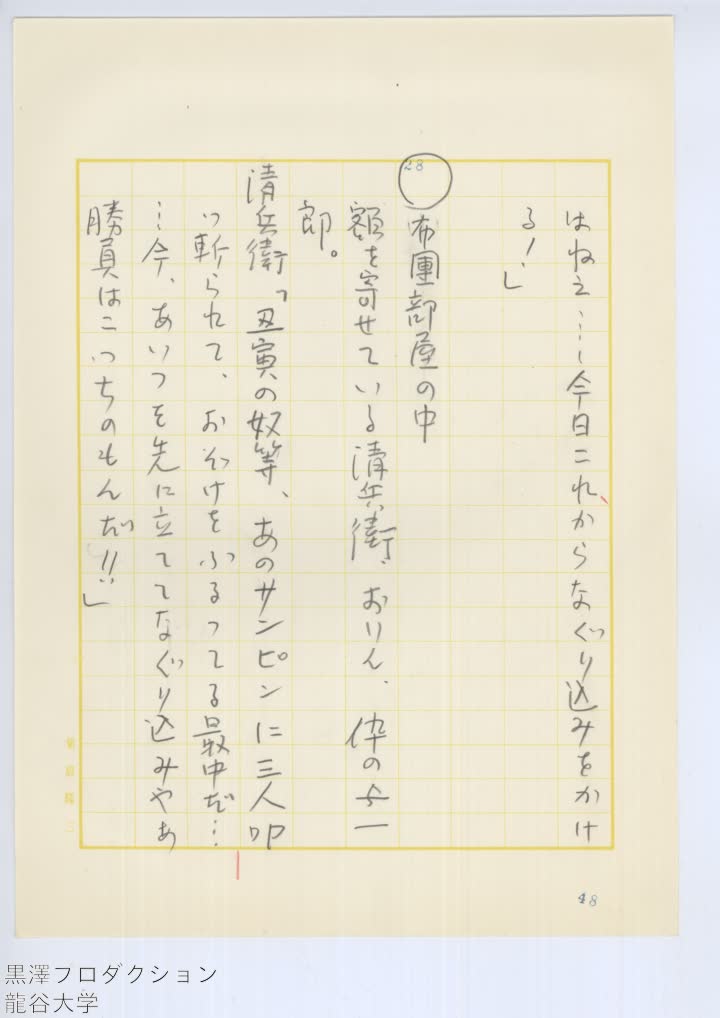 はねえ……今日これからなぐり込みをかけ
る！」
28
布團部屋の中
額を寄せている清兵衛、おりん、伜の与一
郎。
清兵衛「丑寅の奴等、あのサンピンに三人叩
っ斬られて、おぞけをふるってる最中だ…
…今、あいつを先に立ててなぐり込みやあ
勝負はこっちのもんだ!!」
48
黒澤プロダクション
龍谷大学